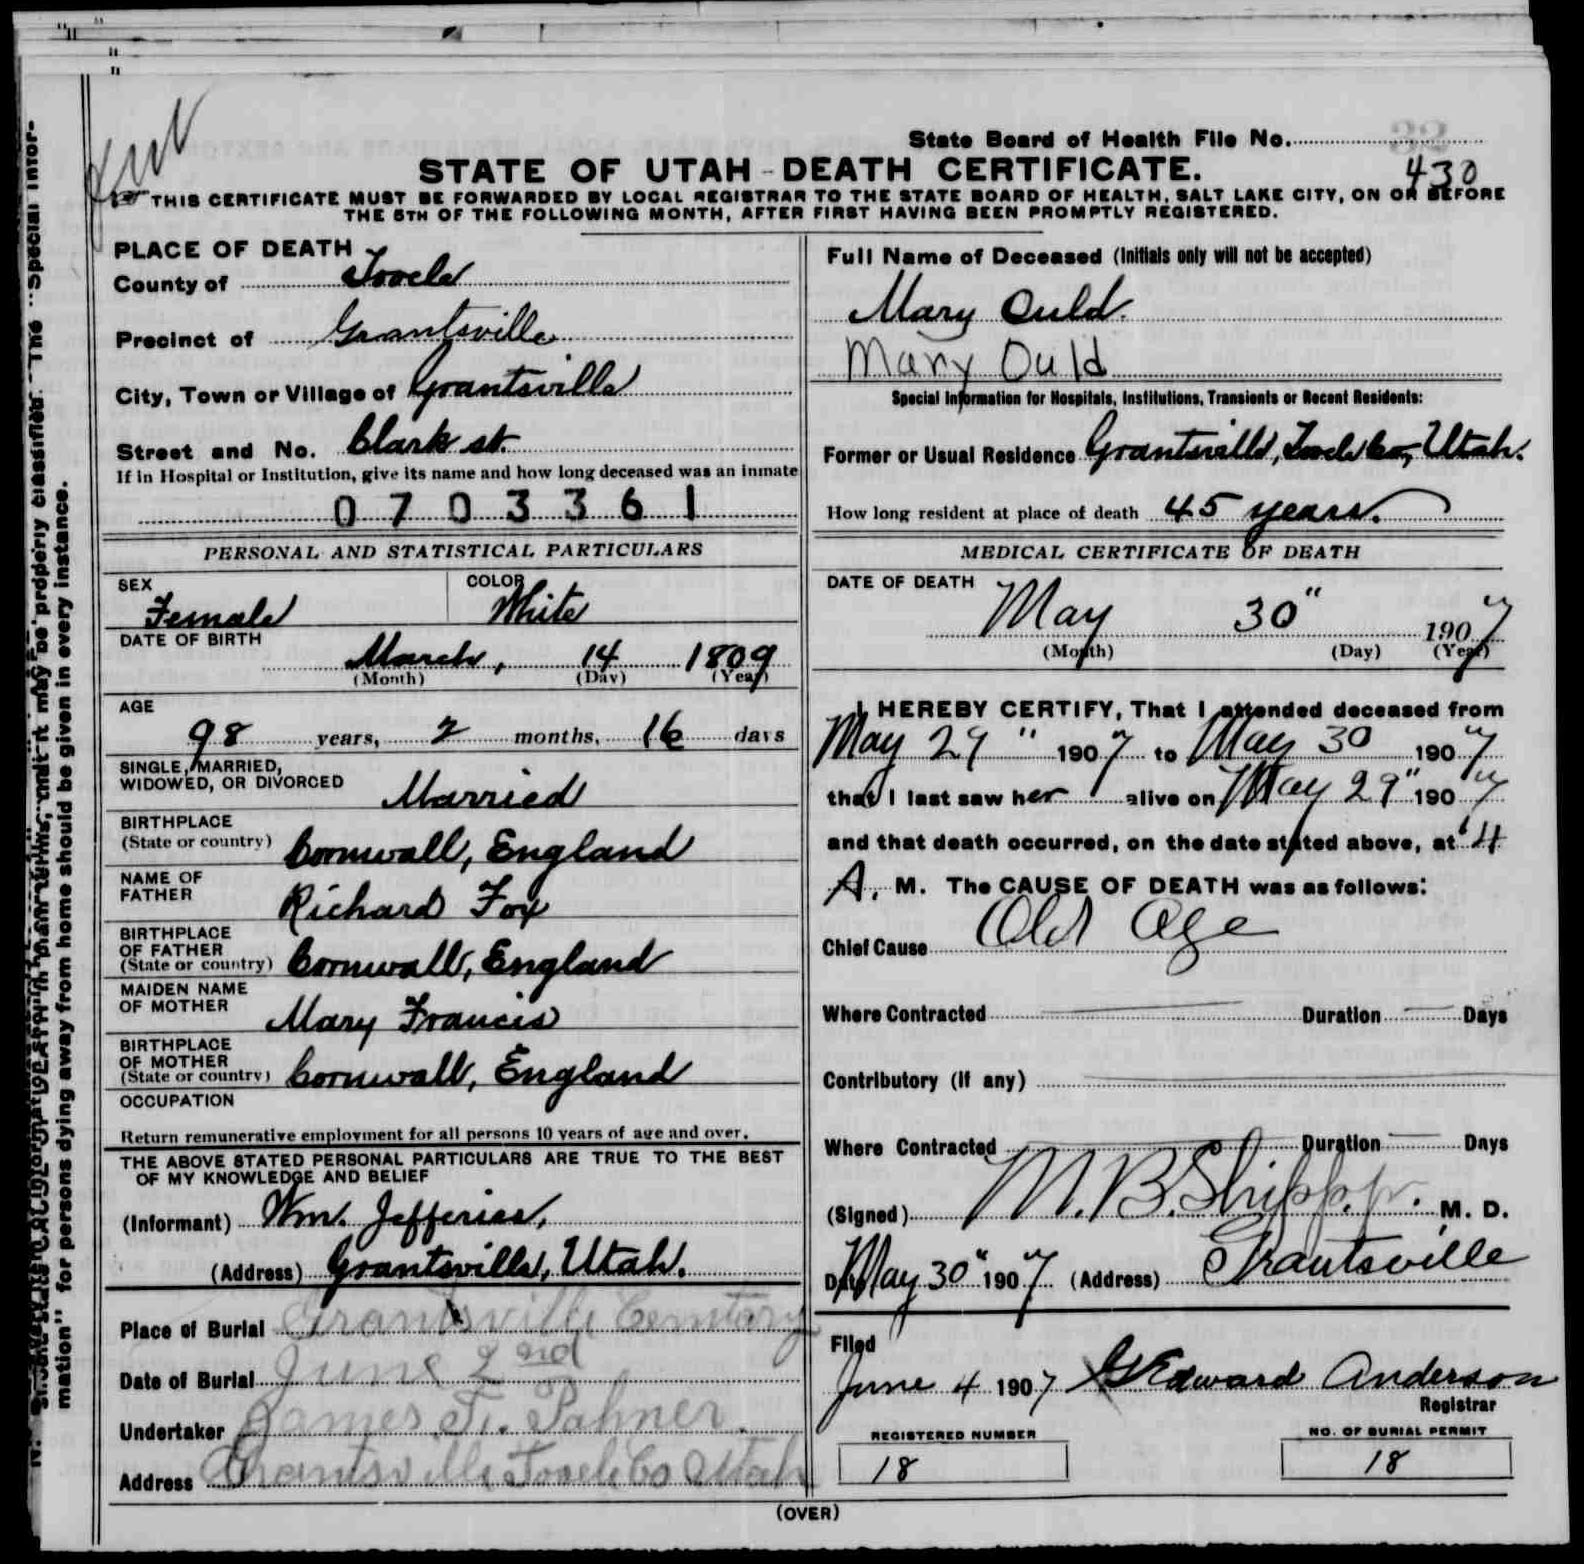 State Board of Health File No.
430
STATE OF UTAH - DEATH CERTIFICATE.
THIS CERTIFICATE MUST BE FORWARDED BY LOCAL REGISTRAR TO THE STATE BOARD OF HEALTH, SALT LAKE CITY, ON OR BEFORE
THE 5TH OF THE FOLLOWING MONTH, AFTER FIRST HAVING BEEN PROMPTLY REGISTERED.
PLACE OF DEATH
County of Tooele
Precinct of Grantsville
City, Town or Village of Grantsville
Street and No. Clark st.
If in Hospital or Institution, give its name and how long deceased was an inmate
0703361
PERSONAL AND STATISTICAL PARTICULARS
SEX Female
COLOR White
DATE OF BIRTH
March, 14 1809
(Month) (Day) (Year)
AGE
98 years, 2 months, 16 days
SINGLE, MARRIED,
WIDOWED, OR DIVORCED Married
BIRTHPLACE
(State or country) Cornwall, England
NAME OF
FATHER Richard Fox
BIRTHPLACE
OF FATHER
(State or country) Cornwall, England
MAIDEN NAME
OF MOTHER Mary Francis
BIRTHPLACE
OF MOTHER
(State or country) Cornwall, England
OCCUPATION
Return remunerative employment for all persons 10 years of age and over.
THE ABOVE STATED PERSONAL PARTICULARS ARE TRUE TO THE BEST
OF MY KNOWLEDGE AND BELIEF
(Informant) Wm. Jefferies,
(Address) Grantsville, Utah.
Place of Burial Grantsville Cemetary
Date of Burial June 2nd
Undertaker James
Address Grantsville Tooele Co Utah
Full Name of Deceased (Initials only will not be accepted)
Mary Ould.
Mary Ould
Special Information for Hospitals, Institutions, Transients or Recent Residents:
Former or Usual Residence Grantsville, Tooele Co, Utah.
How long resident at place of death 45 years.
MEDICAL CERTIFICATE OF DEATH
DATE OF DEATH
May 30" 1907
(Month) (Day) (Year)
I HEREBY CERTIFY, That I attended deceased from
May 29" 1907 to May 30 1907
that I last saw her alive on May 29" 1907
and that death occurred, on the date stated above, at 4
A. M. The CAUSE OF DEATH was as follows:
Chief Cause Old Age
Where Contracted Duration Days
Contributory (If any)
Where Contracted Duration Days
(Signed) M. B. Shipp jr. M. D.
Date May 30" 1907 (Address) Grantsville
Filed
June 4 1907 G Edward Anderson
Registrar
REGISTERED NUMBER
18
NO. OF BURIAL PERMIT
18
(OVER)
mation" for persons dying away from home should be given in every instance.